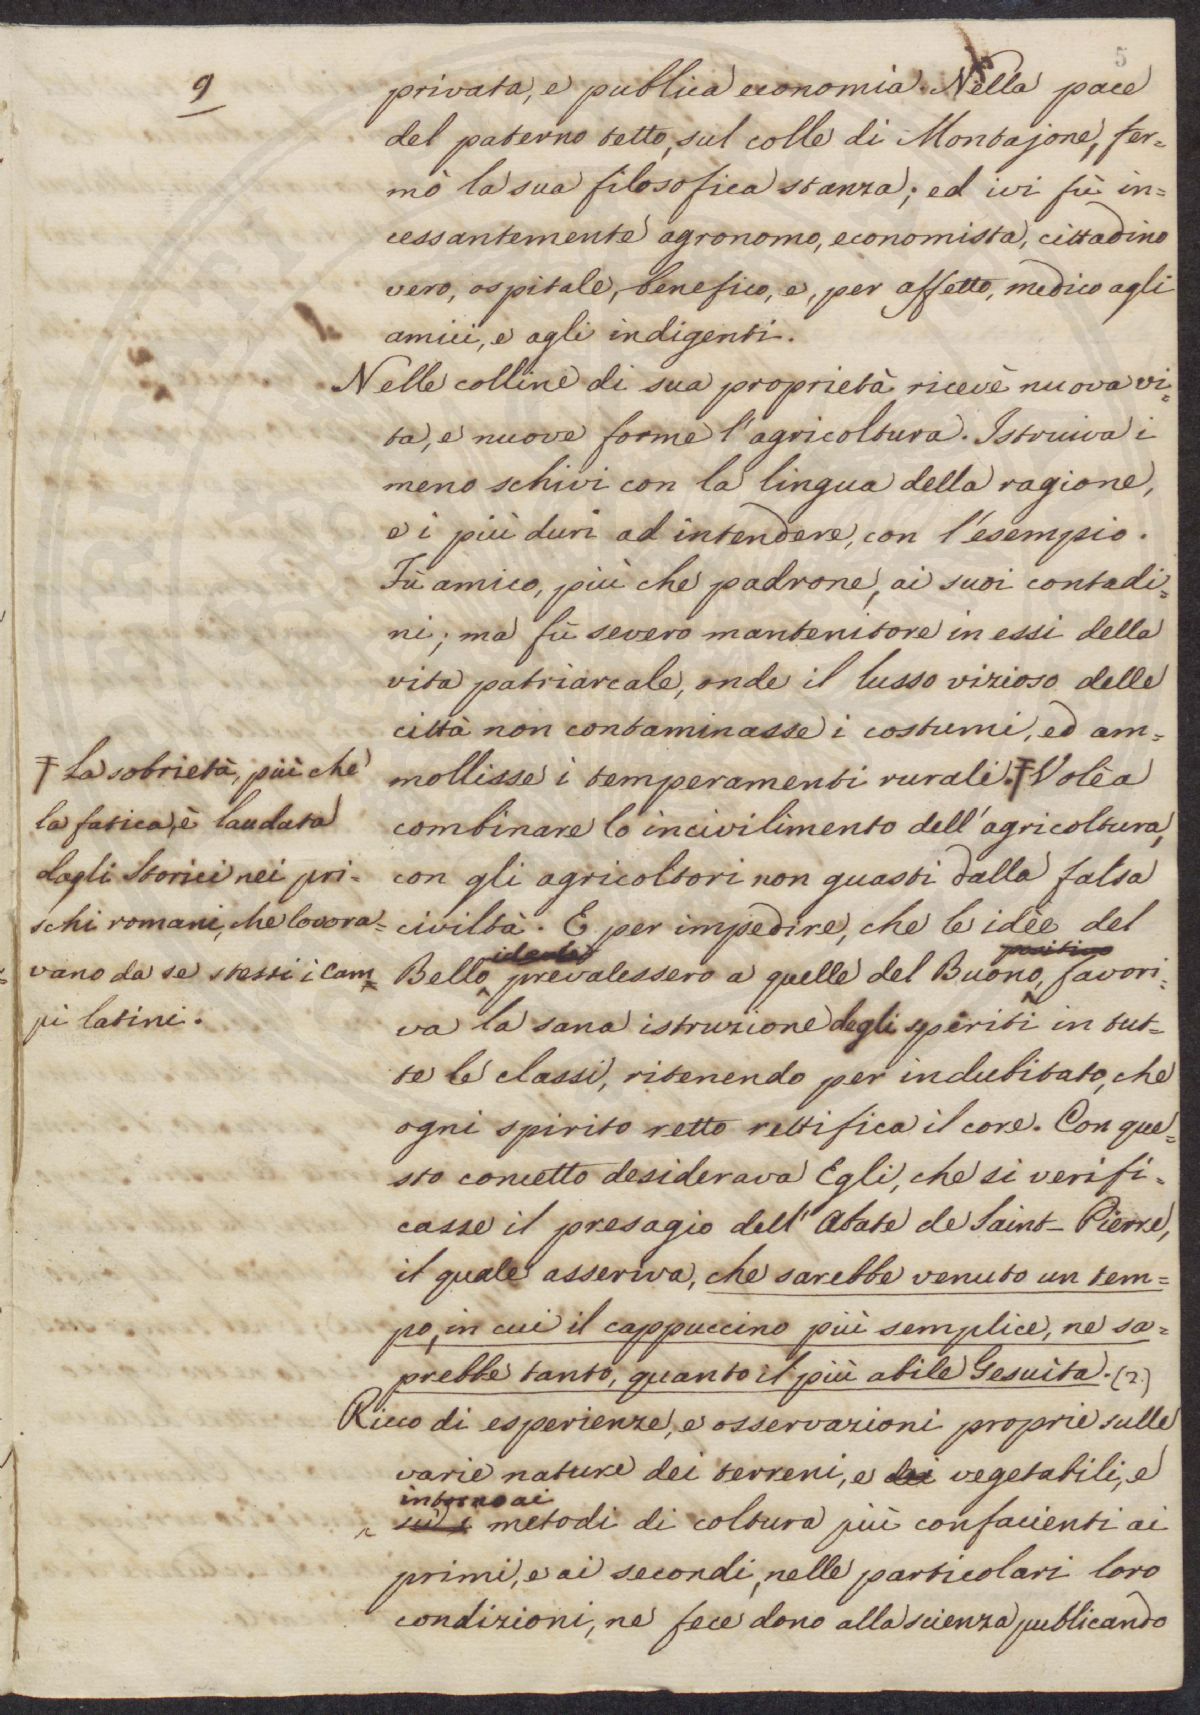 5
9
privata, e publica economia. Nella pace
del paterno tetto, sul colle di Montajone, fer=
mò la sua filosofica stanza; ed ivi fù in=
cessantemente agronomo, economista, cittadino
vero, ospitale, benefico, e, per affetto, medico agli
amici, e agli indigenti.
Nelle colline di sua proprietà ricevè nuova vi=
ta, e nuove forme l'agricoltura. Istruiva i
meno schivi con la lingua della ragione,
e i più duri ad intendere, con l'esempio.
Fù amico, più che padrone, ai suoi contadi=
ni; ma fù severo mantenitore in essi della
vita patriarcale, onde il lusso vizioso delle
città non contaminasse i costumi, ed am=
mollisse i temperamenti rurali. Ŧ Volèa
combinare lo incivilimento dell'agricoltura,
con gli agricoltori non guasti dalla falsa
civiltà. E per impedire, che le idèe del
ideale positivo
Bello prevalessero a quelle del Buono, favori=
va la sana istruzione degli spiriti in tut=
te le classi, ritenendo per indubitato, che
ogni spirito retto rettifica il core. Con que=
sto concetto desiderava Egli, che si verifi=
casse il presagio dell'Abate de Saint-Pierre,
il quale asseriva, che sarebbe venuto un tem=
po, in cui il cappuccino più semplice, ne sa=
prebbe tanto, quanto il più abile Gesuita. (2.)
Ricco di esperienze, e osservazioni proprie sulle
varie nature dei terreni, e dei vegetabili, e
intorno ai
sui metodi di coltura più confacienti ai
primi, e ai secondi, nelle particolari loro
condizioni, ne fece dono alla scienza publicando
Ŧ La sobrietà, più che
la fatica, è laudata
dagli Storici nei pri=
schi romani, che lavora=
vano da se stessi i cam=
pi latini.